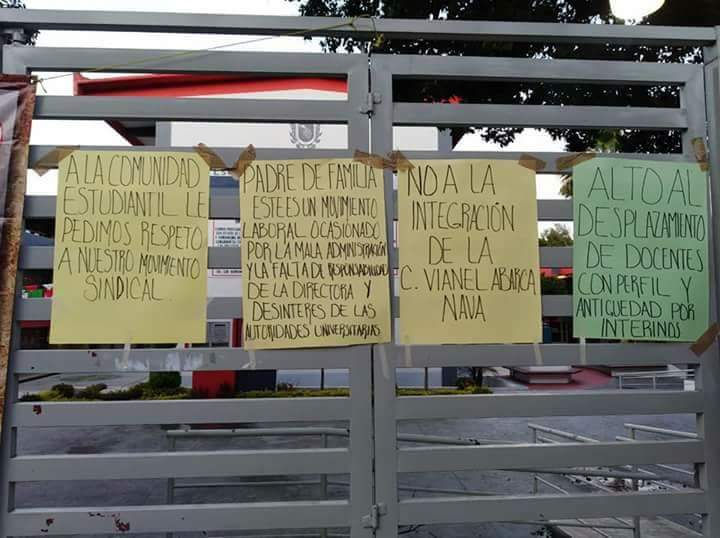 A LA COMUNIDAD
ESTUDIANTIL LE
PEDIMOS RESPETO
A NUESTRO MOVIMIENTO
SINDICAL.
PADRE DE FAMILIA
ESTE ES UN MOVIMIENTO
LABORAL OCASIONADO
POR LA MALA ADMINISTRACIÓN
Y LA FALTA DE RESPONSABILIDAD
DE LA DIRECTORA Y
DESINTERES DE LAS
AUTORIDADES UNIVERSITARIAS.
NO A LA
INTEGRACIÓN
DE LA
C. VIANEL ABARCA
NAVA
ALTO AL
DESPLAZAMIENTO
DE DOCENTES
CON PERFIL Y
ANTIGUEDAD POR
INTERINOS